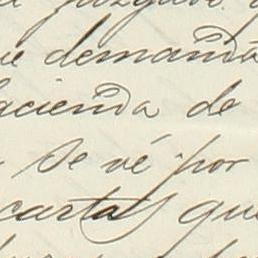 juzgado
demanda
hacienda de
se vé por
cartas que